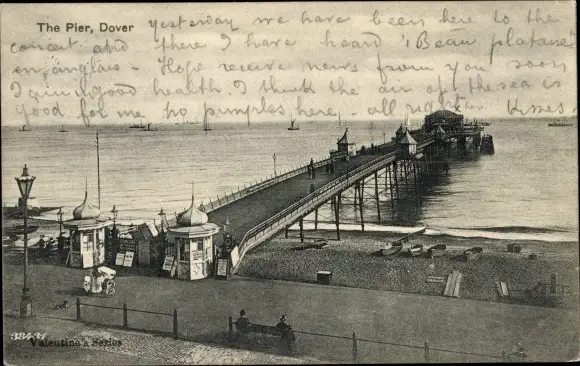 The Pier, Dover
yesterday we have been here to the
concert and there I have heard "Beau platane"
en anglais - Hope receive news from you soon
I am in good health I think the air of the sea is
good for me no pimples here - all right Kisses
33431
Valentine's Series